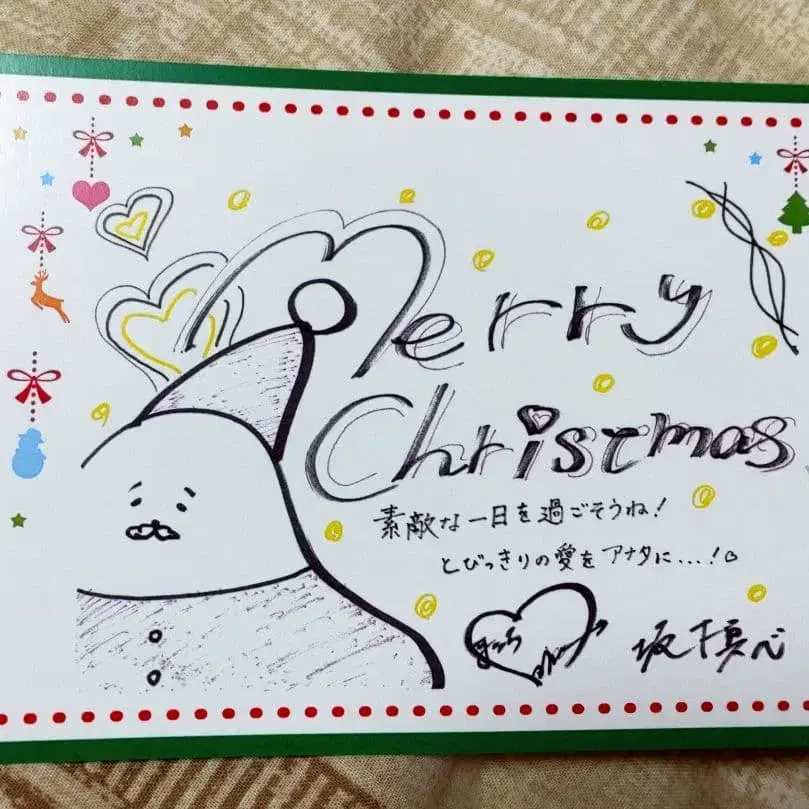 Merry
Christmas
素敵な一日を過ごそうね!
とびっきりの愛をアナタに....!♡
坂下真心